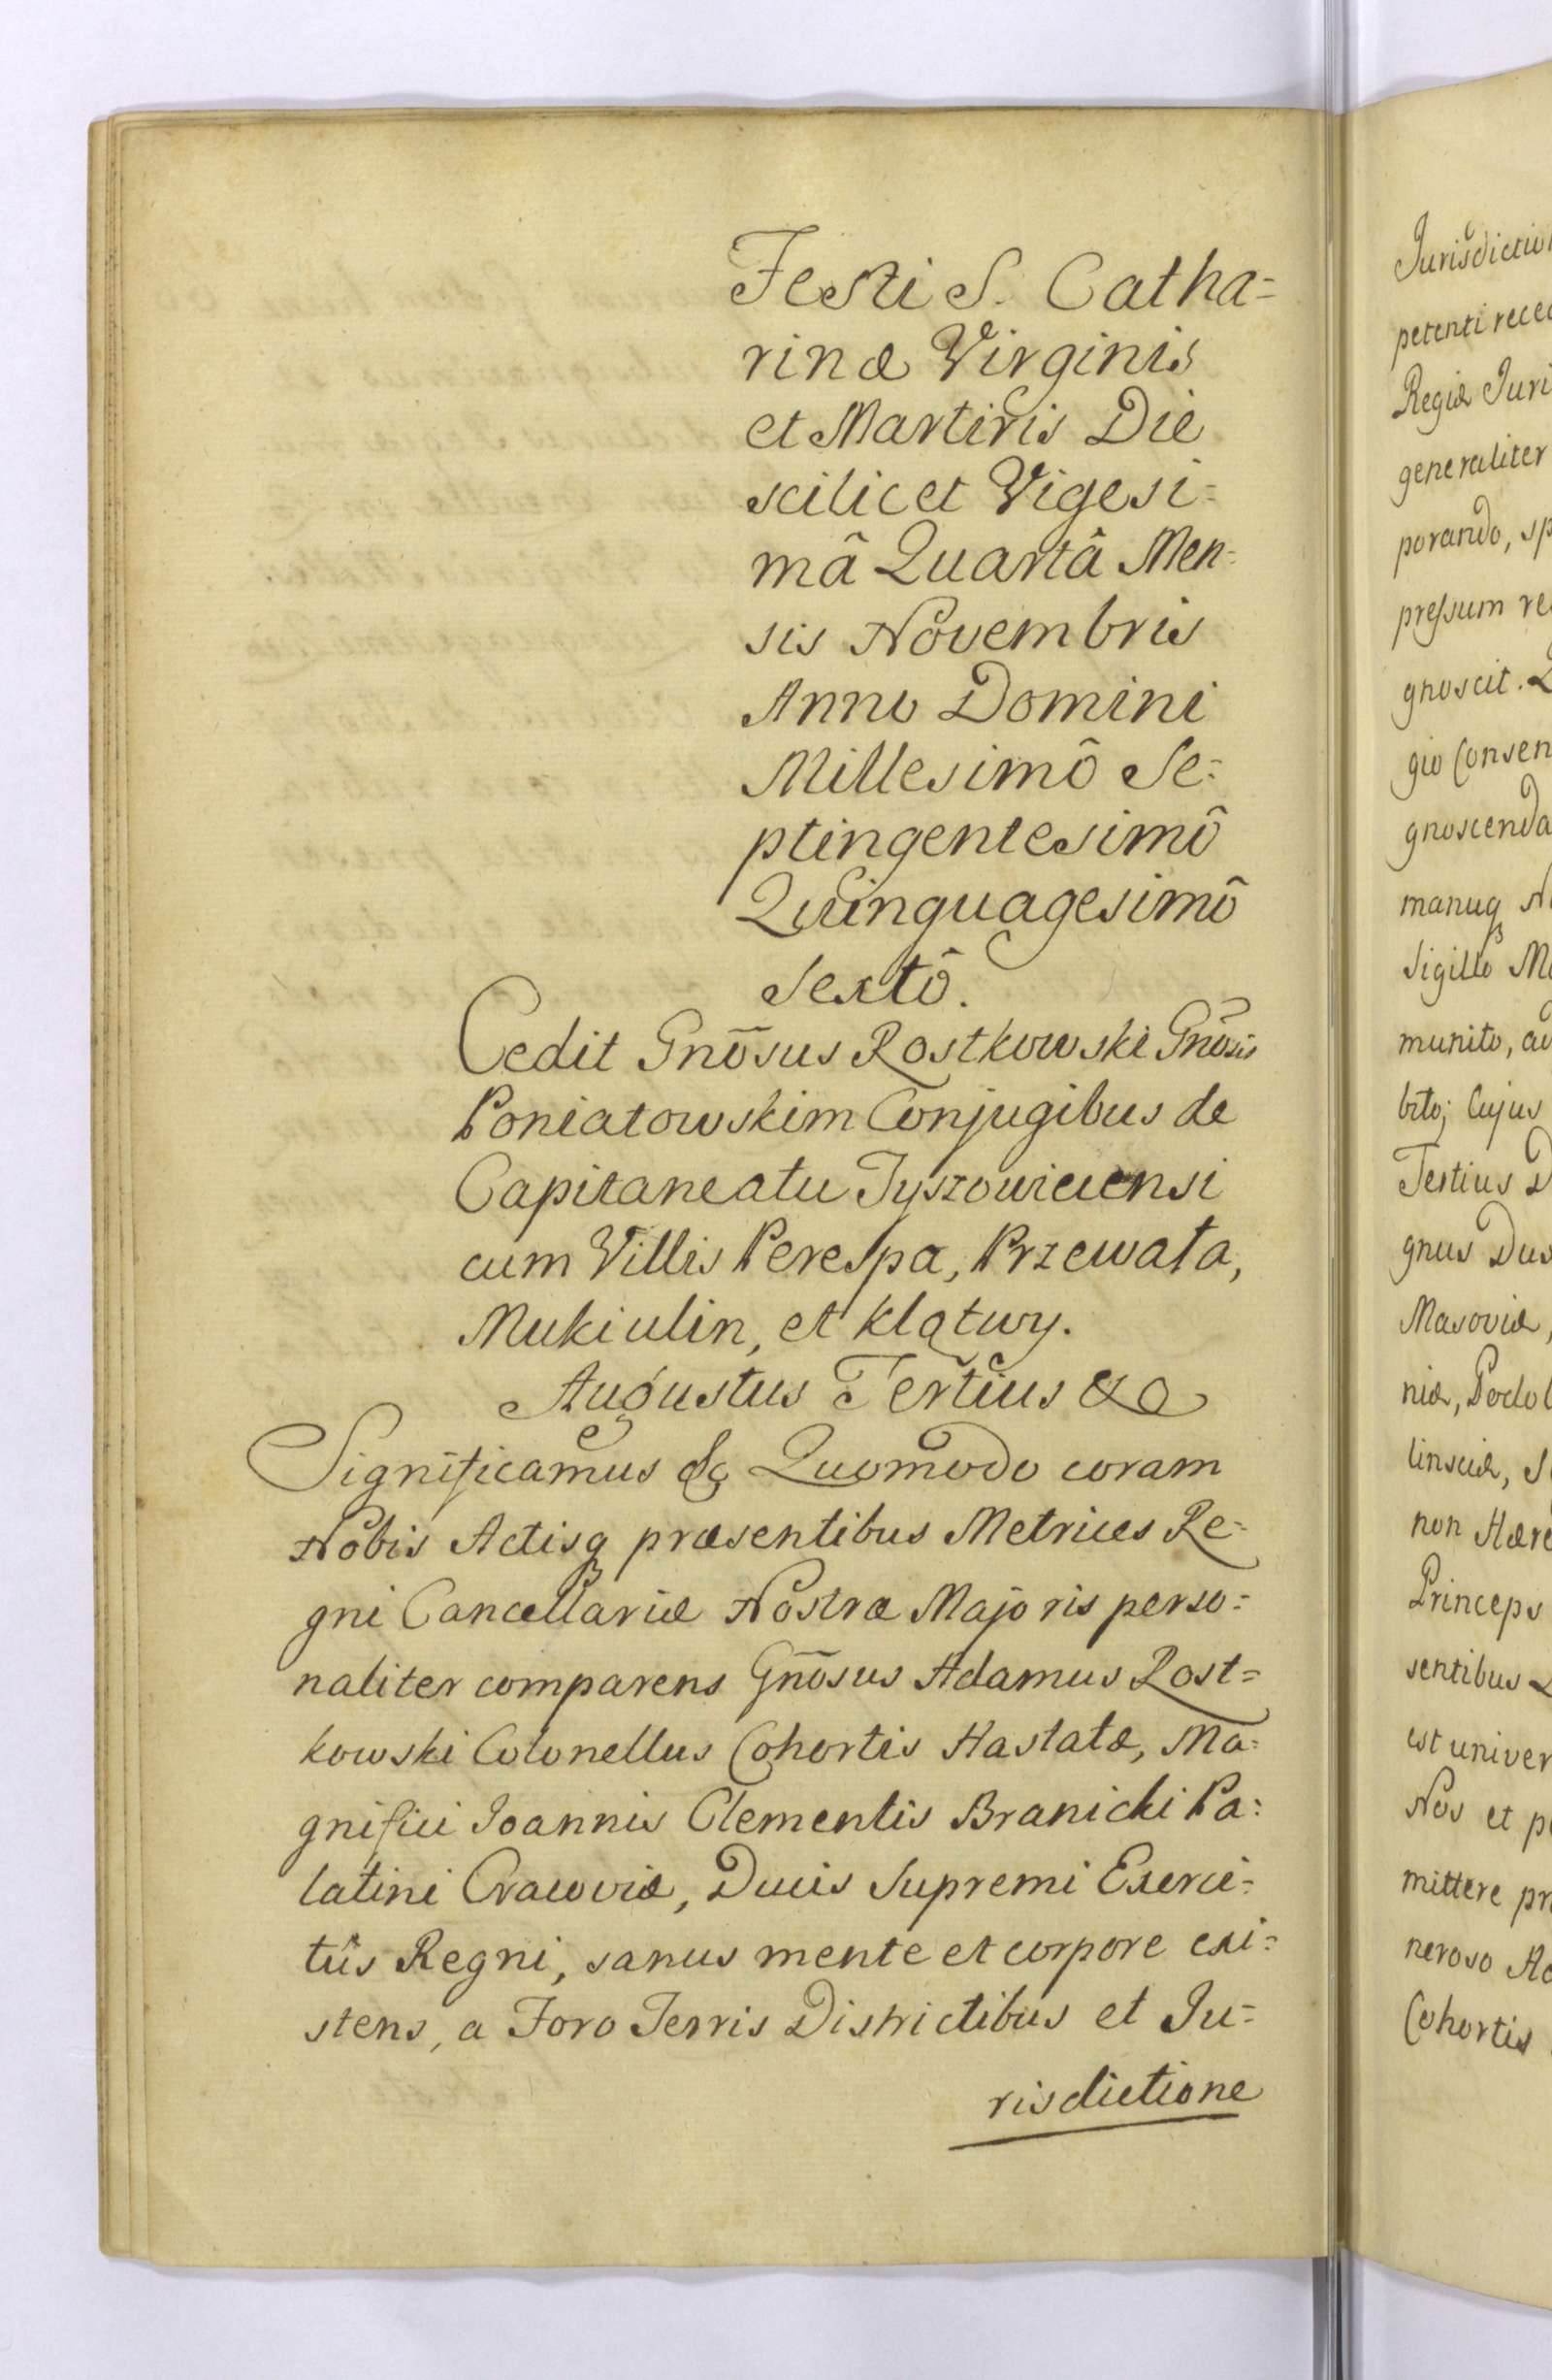 Festi S. Catha=
rinæ Virginis
et Martiris Die
scilicet Vigesi=
mâ Quartâ Men=
sis Novembris
Anno Domini
Millesimô Se=
ptingentesimô
Quinquagesimô
Sextô.
Cedit Gnõsus Rostkowski Gnõsis
Poniatowskim Conjugibus de
Capitaneatu Tyszowiecensi
cum Villis Perespa, Przewała,
Mukiulin, et Klątwy.
Augustus Tertius &c
Significamus &c Quomodo coram
Nobis Actisq præsentibus Metrices Re=
gni Cancellariæ Nostræ Majoris perso=
naliter comparens Gnõsus Adamus Rost=
kowski Colonellus Cohortis Hastatæ, Ma=
gnifici Joannis Clementis Branicki Pa=
latini Cracoviæ, Ducis Supremi Exerci=
tûs Regni, sanus mente et corpore exi=
stens, a Foro Terris Districtibus et Ju=
risdictione
Jurisdictio
petenti rece
Regiæ Juri
generaliter
porando, sp
pressum re
gnoscit.
gio Consen
gnoscenda
manuq
Sigillo
munito,
Cujus
Tertius
gnus Dux
Masoviæ,
niæ, Podol
non Hære
Princeps
sentibus
est univer
Nos et
mittere
neroso
Cohortis